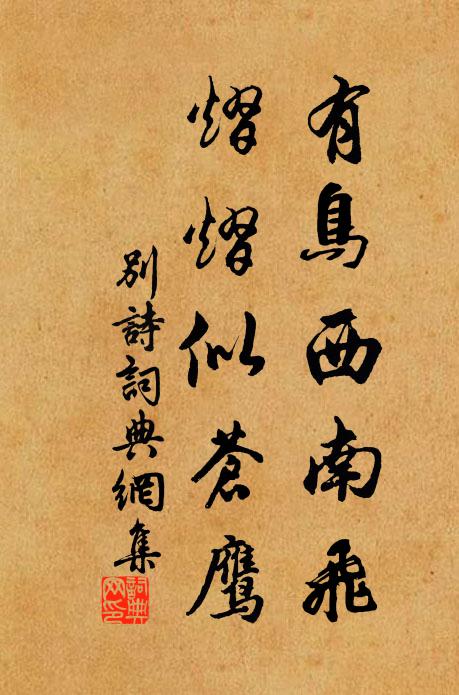 有鳥西南飛
熠熠似蒼鷹
別詩詞典網集
詞典網印